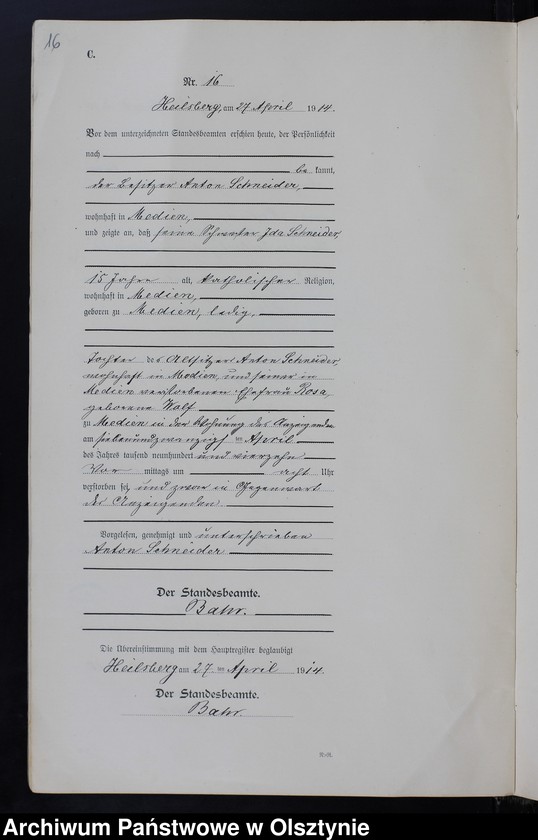 16
C.
Nr. 16
Heilsberg, am 27 April 1914.
Vor dem unterzeichneten Standesbeamten erschien heute, der Persönlichkeit
nach
be kannt,
der Besitzer Anton Schneider,
wohnhaft in Medien,
und zeigte an, daß seine Schwester Ida Schneider,
15 Jahre alt, katholischer Religion,
wohnhaft in Medien,
geboren zu Medien, ledig,
Tochter des Altsitzers Anton Schneider,
wohnhaft in Medien, und seiner in
Medien verstorbenen Ehefrau Rosa,
geborene Wolf
zu Medien in der Wohnung des Anzeigenden
am siebenundzwanzigsten April
des Jahres tausend neunhundert und vierzehn
Vor mittags um acht Uhr
verstorben sei, und zwar in Gegenwart
des Anzeigenden.
Vorgelesen, genehmigt und unterschrieben
Anton Schneider
Der Standesbeamte.
Bahr.
Die Übereinstimmung mit dem Hauptregister beglaubigt
Heilsberg am 27. ten April 1914.
Der Standesbeamte.
Bahr.
Archiwum Państwowe w Olsztynie